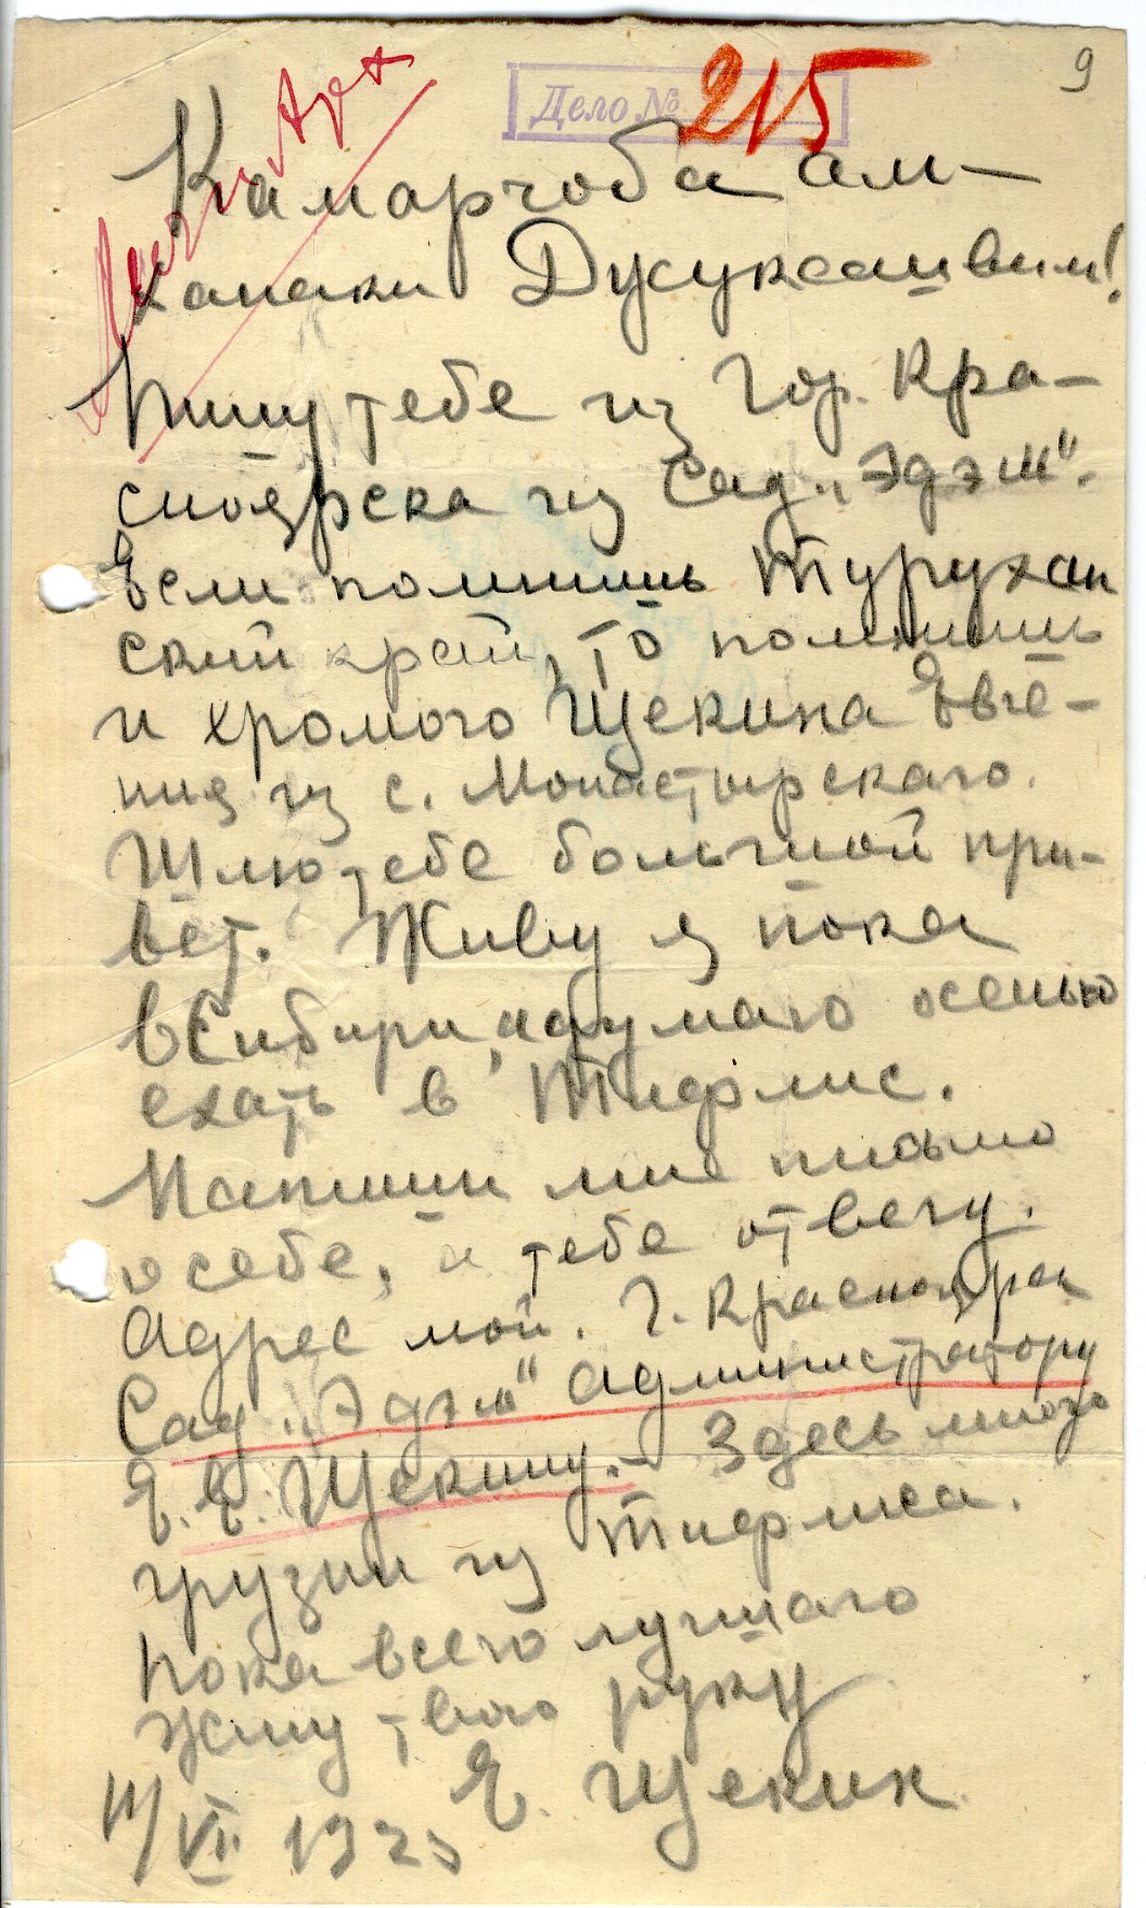 9
Дело № 215
Личн. Арх
Камарчоба ам-
ханаки Джукашвили!
Пишу тебе из гор. Кра-
сноярска из сад „Эдэм".
Если помнишь Турухан
ский край, то помнишь
и хромого Щекина Евге-
ния из с. Монастырскаго.
Шлю тебе большой при-
вет. Живу я пока
в Сибири, и думаю осенью
ехать в Тифлис.
Напиши мне письмо
о себе, я тебе отвечу.
Адрес мой. Г. Красноярск
Сад „Эдэм" администратору
Е. Е. Щекину. – Здесь много
грузин из Тифлиса.
Пока всего лучшаго
жму твою руку
Е. Щекин
VI. 1925